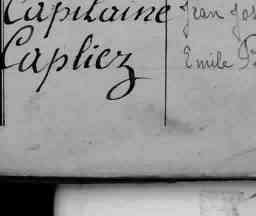 Capitaine Jean Jos
Capliez Emile